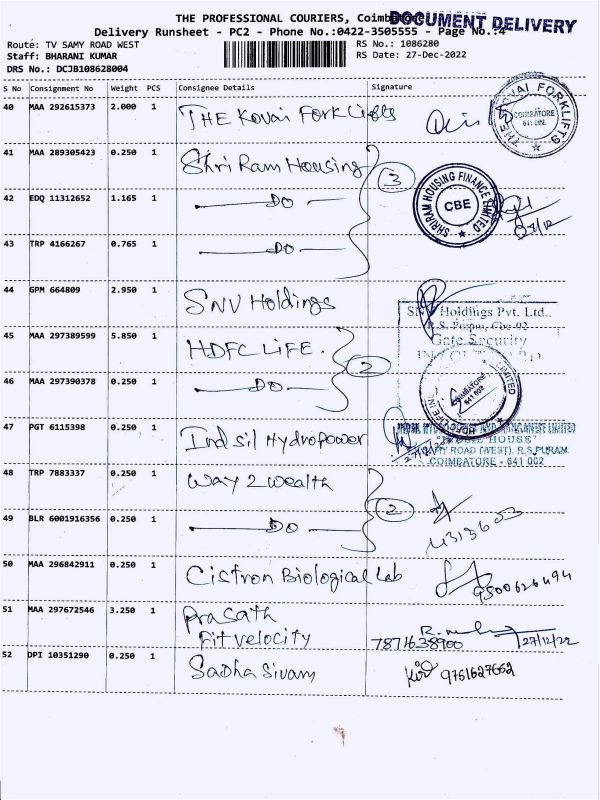 THE PROFESSIONAL COURIERS, Coimbatore
DOCUMENT DELIVERY
Delivery Runsheet - PC2 - Phone No.:0422-3505555 - Page No.:4
Route: TV SAMY ROAD WEST
RS No.: 1086280
Staff: BHARANI KUMAR
RS Date: 27-Dec-2022
DRS No.: DCJB108628004
S No Consignment No Weight PCS Consignee Details Signature
40 MAA 292615373 2.000 1 THE Kovai ForkLifts
THE KOVAI FORKLIFTS
COIMBATORE
641 002
41 MAA 289305423 0.250 1 Shri Ram Housing
3
SHRIRAM HOUSING FINANCE LIMITED
CBE
42 EDQ 11312652 1.165 1 DO
27/12
43 TRP 4166267 0.765 1 DO
44 GPM 664809 2.950 1 SNV Holdings
SNV Holdings Pvt. Ltd.,
R.S. Puram, Cbe-02
Gate Security
45 MAA 297389599 5.850 1 HDFC LIFE.
2
46 MAA 297390378 0.250 1 DO
COIMBATORE
641 002
LIMITED
47 PGT 6115398 0.250 1 Ind Sil Hydropower
"INDSIL HOUSE"
ROAD (WEST), R.S.PURAM
COIMBATORE - 641 002
48 TRP 7883337 0.250 1 Way 2 Wealth
2
49 BLR 6001916356 0.250 1 DO
4313603
50 MAA 296842911 0.250 1 Cistron Biological Lab
9500626494
51 MAA 297672546 3.250 1 Prasath
Fit velocity
7871638900 27/12/22
52 DPI 10351290 0.250 1 Sadha Sivam
9751627662